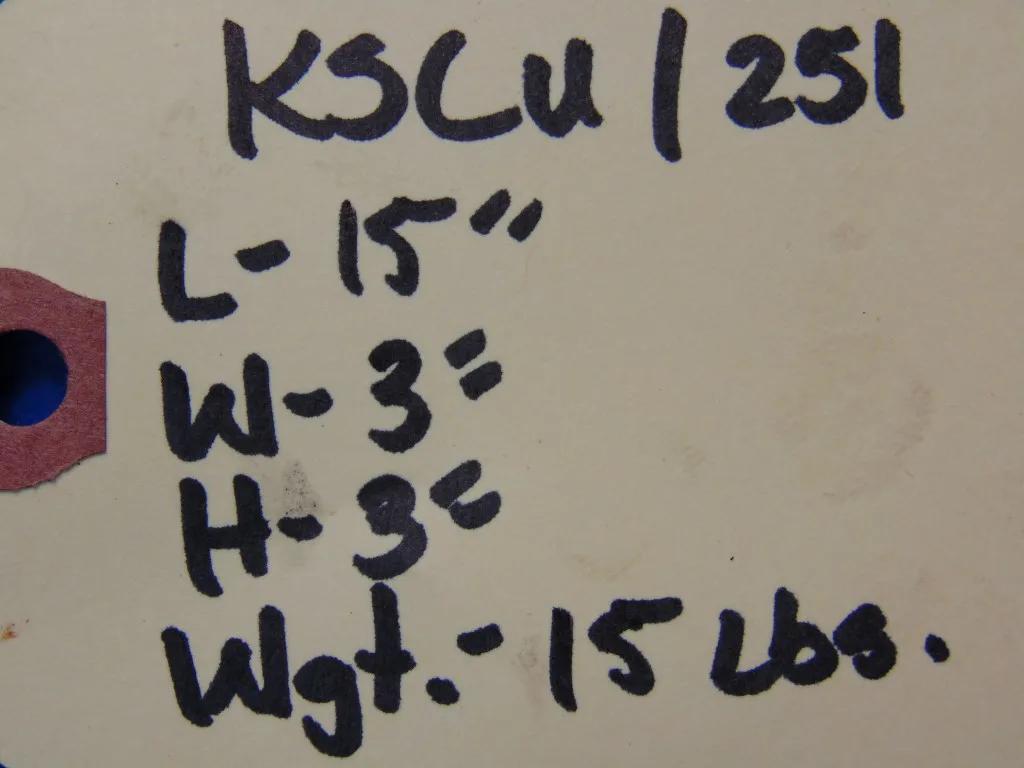 KSCU/251
L- 15"
W- 3"
H- 3"
Wgt.- 15 Lbs.